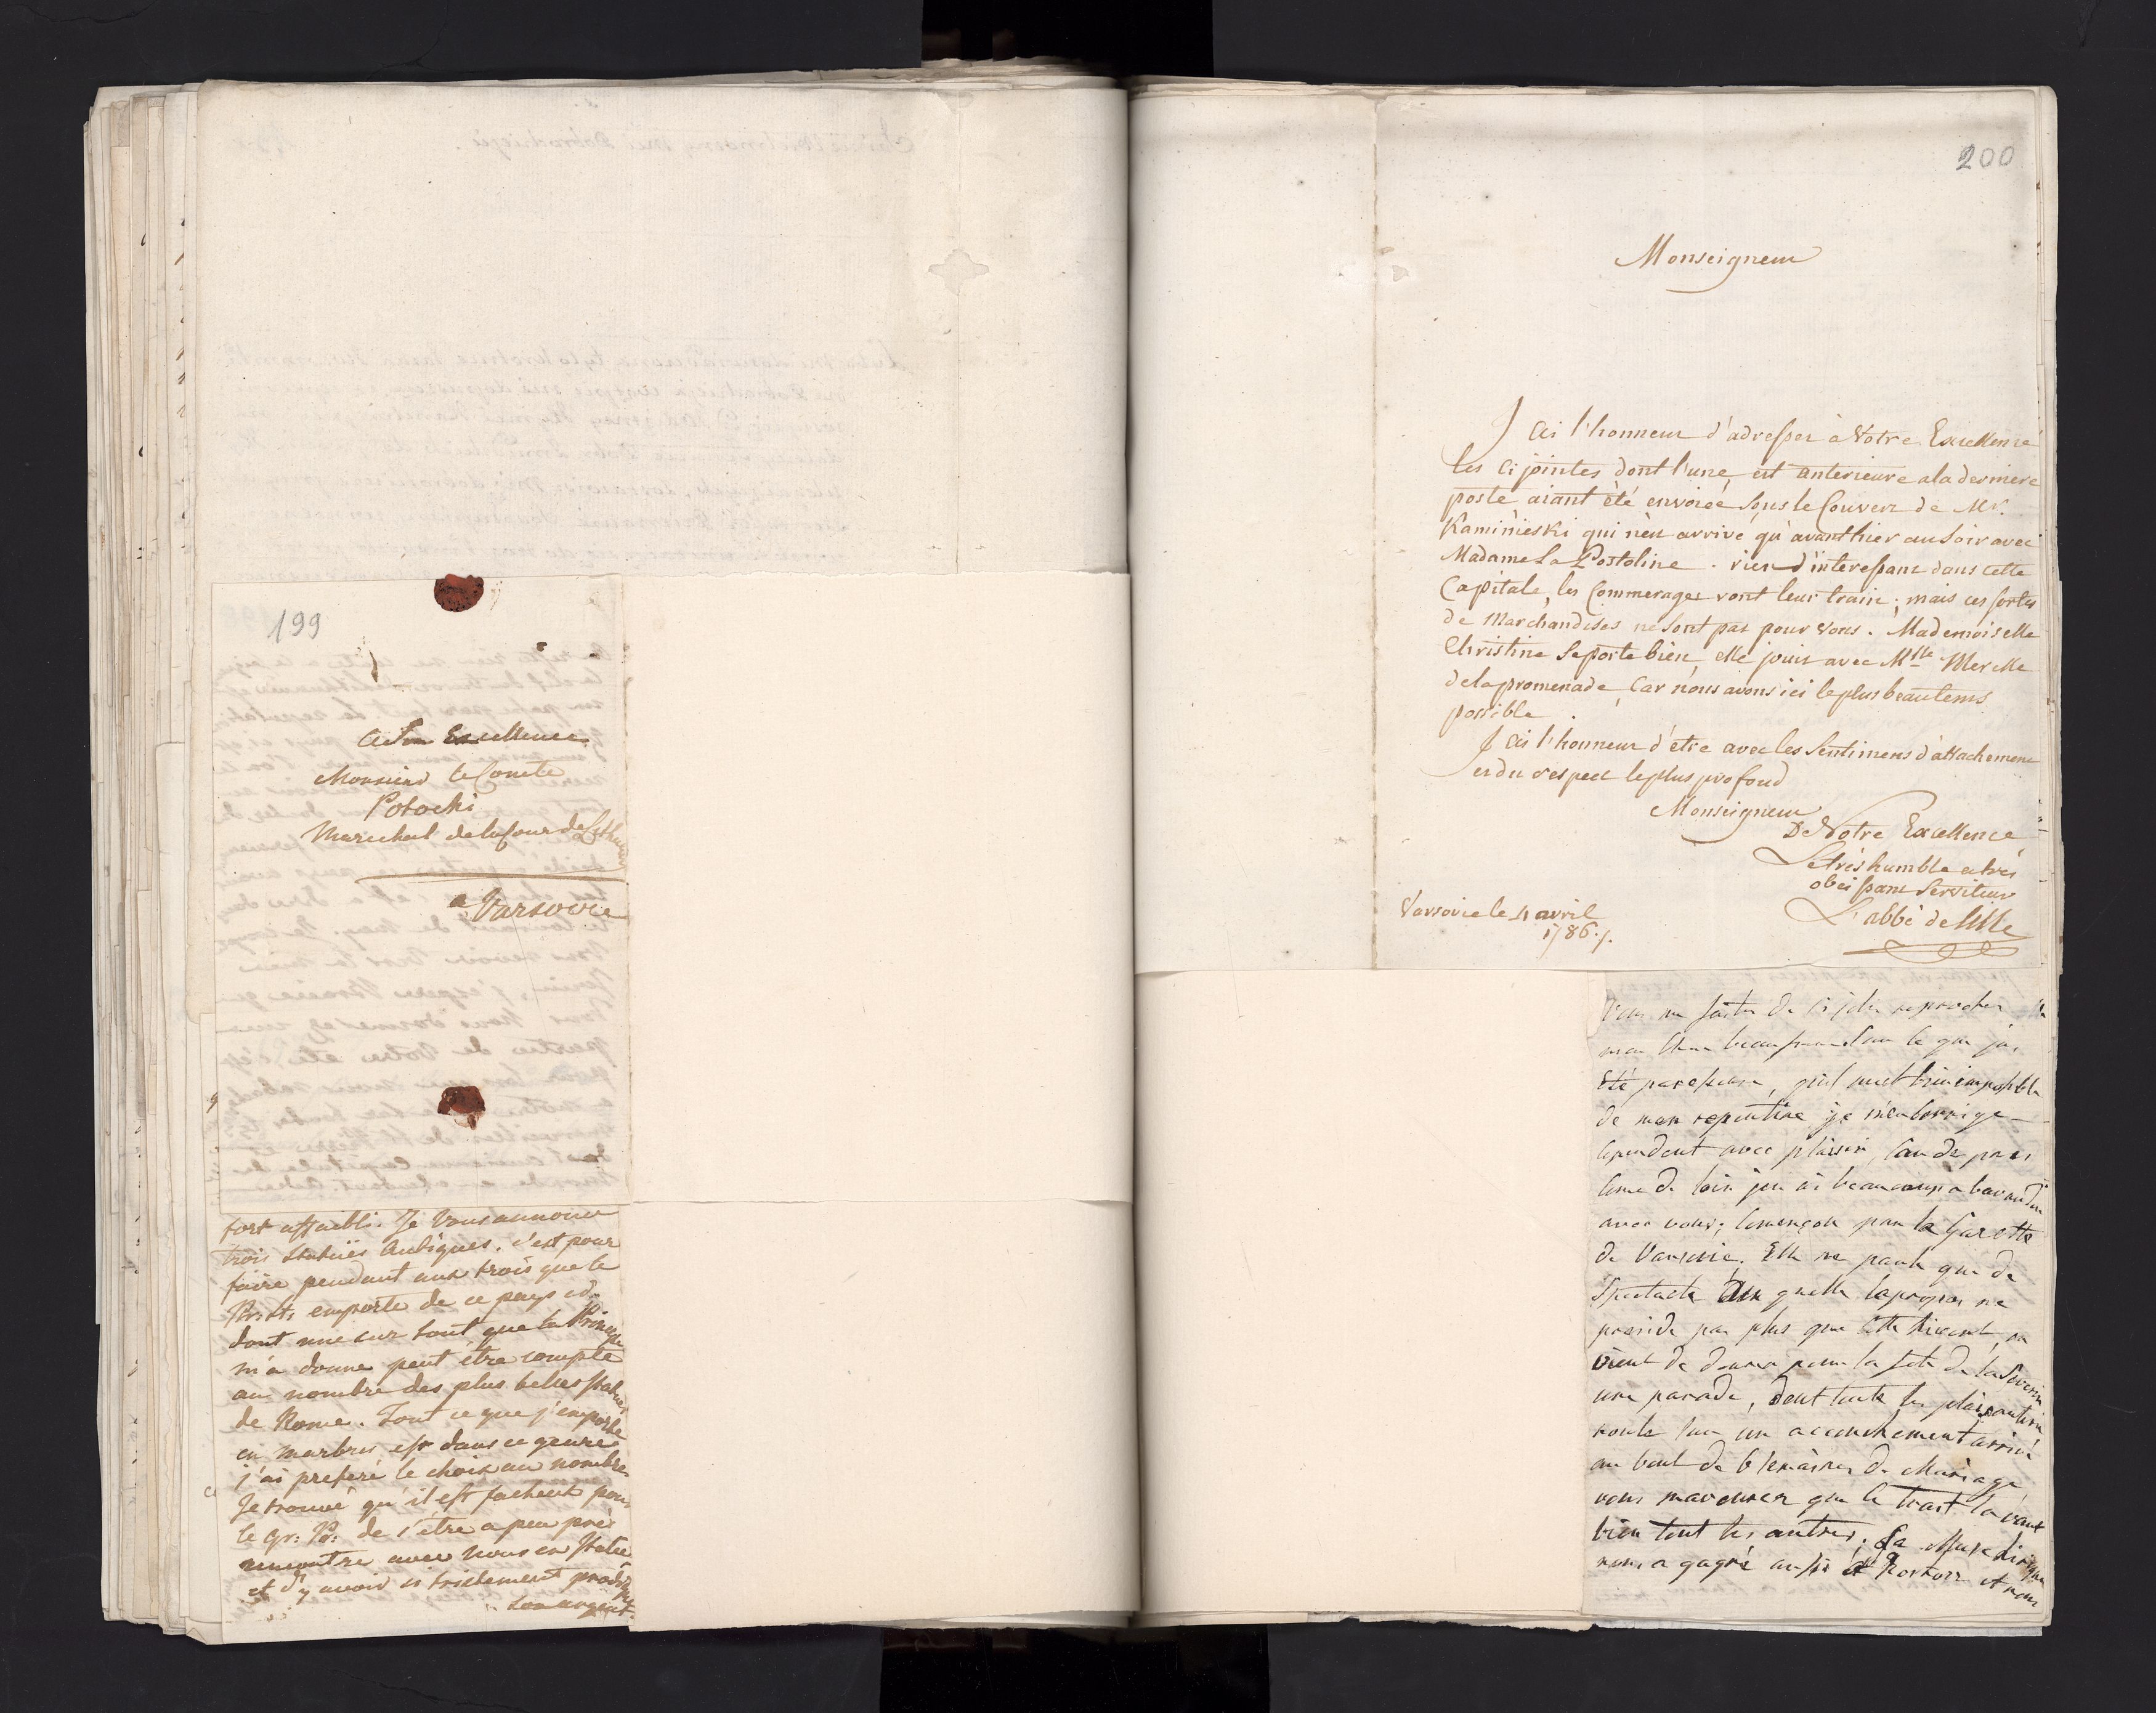 199
A Son Excellence
Monsieur le Comte
Potocki
Marechal de la Cour de Lithuanie
a Varsovie
fort affaibli. Je vous annonce
trois Statuës Antiques. c'est pour
faire pendant aux trois que le
emporte de ce pays ci.
dont une sur tout que la Princesse
m'a donné peut être compté
au nombre des plus belles statues
de Rome. Tout ce que j'emporte
en marbres est dans ce genre
j'ai preferé le choix au nombre
Je trouve qu'il est facheux pour
le Gr: de s'être a peu près
rencontré avec nous en Italie
et d'y avoir si tristement prodigué
son argent.
200
Monseigneur
J'ai l'honneur d'adresser à Votre Excellence
les ci jointes dont l'une est anterieure a la derniere
poste aiant été envoiée sous le Couvert de Mr.
Kaminieski qui n'est arrivé qu'avanthier au soir avec
Madame La Postoline. rien d'interessant dans cette
Capitale, les Commerages vont leur train; mais ces sortes
de Marchandises ne sont pas pour vous. Mademoiselle
Christine se porte bien, elle jouit avec Mlle Merelle
de la promenade, car nous avons ici le plus beau tems
possible.
J'ai l'honneur d'etre avec les Sentimens d'attachement
et du respect le plus profond
Monseigneur
De Votre Excellence
Le très humble et très
obeissant Serviteur
L'abbé de Lille
Varsovie le 4 avril
1786.
Vous me faites de si jolis reproches
mon cher beaufrere sur ce que j'ai
été paresseuse, qu'il m'est bien impossible
de m'en repentir je m'en corrige
cependant avec plaisir, car de près
come de loin jen ai beaucoup a bavarder
avec vous; començon par la Gazette
de Varsovie. Elle ne parle que de
Spectacle
possede pas plus que cette on
vient de donner pour la fete de
une parade, dont toute les plaisanteries
roule sur un accouchement arrivé
au bout de 6 semaines de Mariage
vous mavouerez que le trait la vaut
bien tout les autres. La Muse
nous a gagné aussi et nous